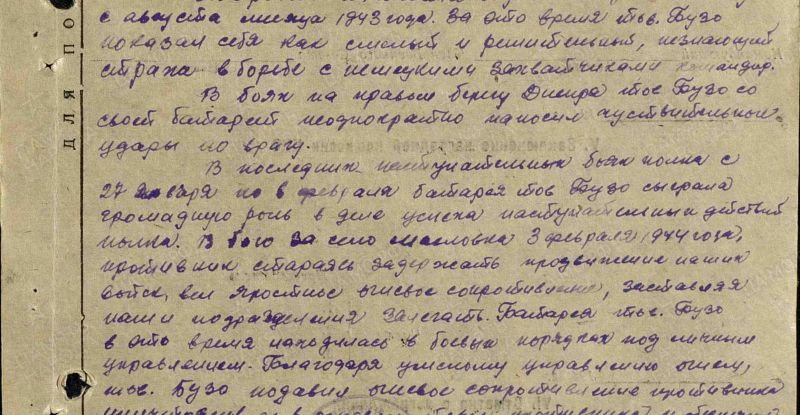 с августа месяца 1943 года. За это время тов. Бузо
показал себя как смелый и решительный, незнающий
страха в борьбе с немецкими захватчиками командир.
В боях на правом берегу Днепра тов Бузо со
своей батареей неоднократно наносил чуствительные
удары по врагу.
В последних наступательных боях полка с
27 января по 8 февраля батарея тов Бузо сыграла
громадную роль в деле успеха наступательных действий
полка. В бою за село Масловка 3 февраля 1944 года,
противник стараясь задержать продвижение наших
войск, вел яростное огневое сопротивление, заставляя
наши подразделения залегать. Батарея тов. Бузо
в это время находилась в боевых порядках под личным
управлением. Благодаря умелому управлению огнем,
тов. Бузо подавил огневое сопротивление противника
ДЛЯ ПО